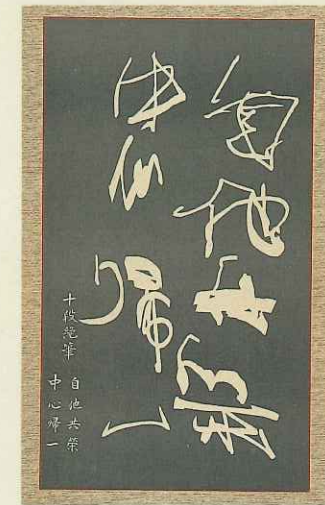 自他共栄
中心帰一
十段範華
自他共栄
中心帰一